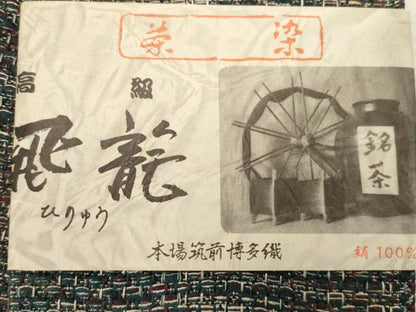 茶染
高級
飛龍
ひりゅう
銘茶
本場筑前博多織
絹100%